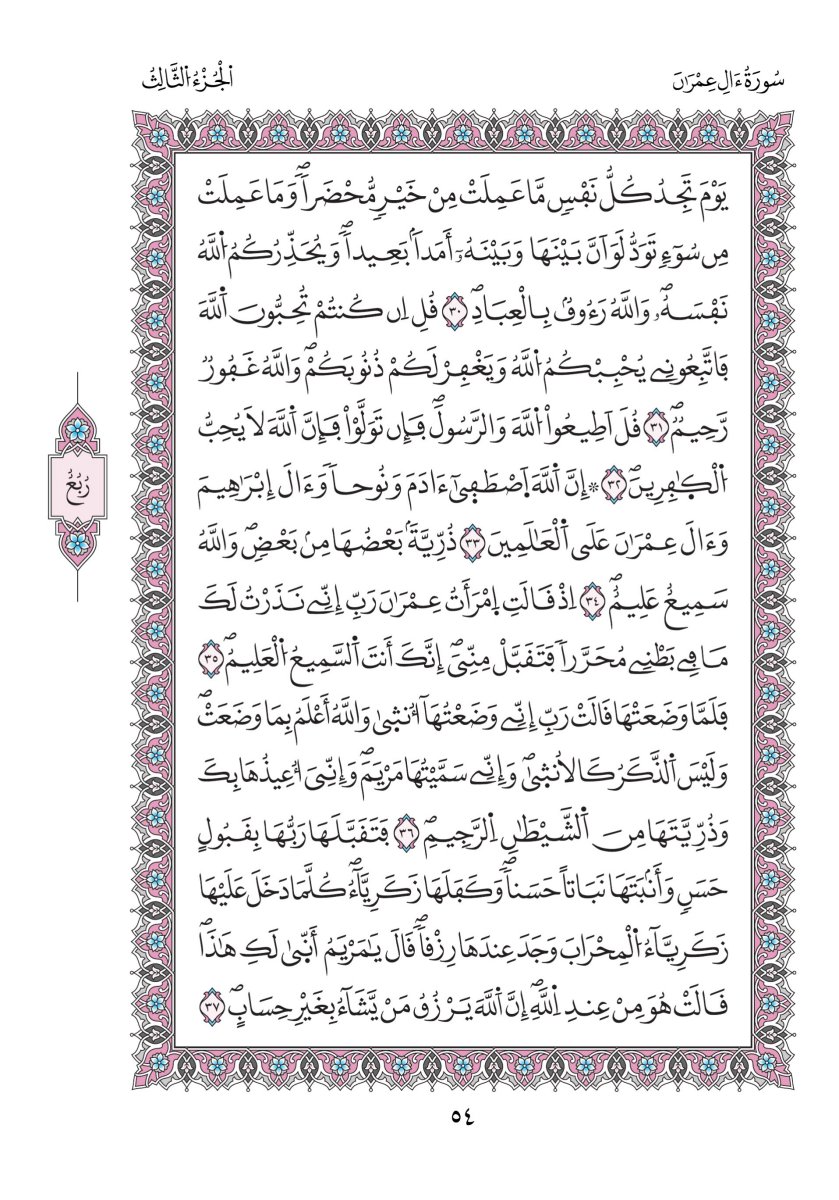 سُورَةُ ءَالِ عِمْرَٰنَ
اَ۬لْجُزْءُ اَ۬لثَّالِثُ
يَوْمَ تَجِدُ كُلُّ نَفْسٖ مَّا عَمِلَتْ مِنْ خَيْرٖ مُّحْضَراٗۖ وَمَا عَمِلَتْ
مِن سُوٓءٖ تَوَدُّ لَوَ اَنَّ بَيْنَهَا وَبَيْنَهُۥٓ أَمَداَۢ بَعِيداٗۖ وَيُحَذِّرُكُمُ اُ۬للَّهُ
نَفْسَهُۥۖ وَاللَّهُ رَءُوفُۢ بِالْعِبَادِۖ ٣٠ قُلِ اِن كُنتُمْ تُحِبُّونَ اَ۬للَّهَ
فَاتَّبِعُونِے يُحْبِبْكُمُ اُ۬للَّهُ وَيَغْفِرْ لَكُمْ ذُنُوبَكُمْۖ وَاللَّهُ غَفُورٞ
رَّحِيمٞۖ ٣١ قُلَ اَطِيعُواْ اُ۬للَّهَ وَالرَّسُولَۖ فَإِن تَوَلَّوْاْ فَإِنَّ اَ۬للَّهَ لَا يُحِبُّ
اُ۬لْكَٰفِرِينَۖ ٣٢ ۞ إِنَّ اَ۬للَّهَ اَ۪صْطَف۪ىٰٓ ءَادَمَ وَنُوحاٗ وَءَالَ إِبْرَٰهِيمَ
وَءَالَ عِمْرَٰنَ عَلَى اَ۬لْعَٰلَمِينَ ٣٣ ذُرِّيَّةَۢ بَعْضُهَا مِنۢ بَعْضٖۖ وَاللَّهُ
سَمِيعٌ عَلِيمٌۖ ٣٤ اِذْ قَالَتِ اِ۪مْرَأَتُ عِمْرَٰنَ رَبِّ إِنِّے نَذَرْتُ لَكَ
مَا فِے بَطْنِے مُحَرَّراٗ فَتَقَبَّلْ مِنِّيَۖ إِنَّكَ أَنتَ اَ۬لسَّمِيعُ اُ۬لْعَلِيمُۖ ٣٥
فَلَمَّا وَضَعَتْهَا قَالَتْ رَبِّ إِنِّے وَضَعْتُهَآ أُنث۪ىٰ وَاللَّهُ أَعْلَمُ بِمَا وَضَعَتْۖ
وَلَيْسَ اَ۬لذَّكَرُ كَالُانث۪ىٰۖ وَإِنِّے سَمَّيْتُهَا مَرْيَمَۖ وَإِنِّيَ أُعِيذُهَا بِكَ
وَذُرِّيَّتَهَا مِنَ اَ۬لشَّيْطَٰنِ اِ۬لرَّجِيمِۖ ٣٦ فَتَقَبَّلَهَا رَبُّهَا بِقَبُولٍ
حَسَنٖ وَأَنۢبَتَهَا نَبَاتاً حَسَناٗۖ وَكَفَلَهَا زَكَرِيَّآءُۖ كُلَّمَا دَخَلَ عَلَيْهَا
زَكَرِيَّآءُ اُ۬لْمِحْرَابَ وَجَدَ عِندَهَا رِزْقاٗۖ قَالَ يَٰمَرْيَمُ أَنّ۪ىٰ لَكِ هَٰذَاۖ
قَالَتْ هُوَ مِنْ عِندِ اِ۬للَّهِۖ إِنَّ اَ۬للَّهَ يَرْزُقُ مَنْ يَّشَآءُ بِغَيْرِ حِسَابٍۖ ٣٧
رُبُعُ
٥٤